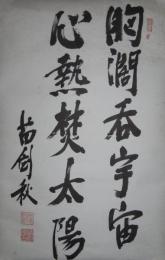 胸濶吞宇宙
心熱焚太陽
苗劍秋